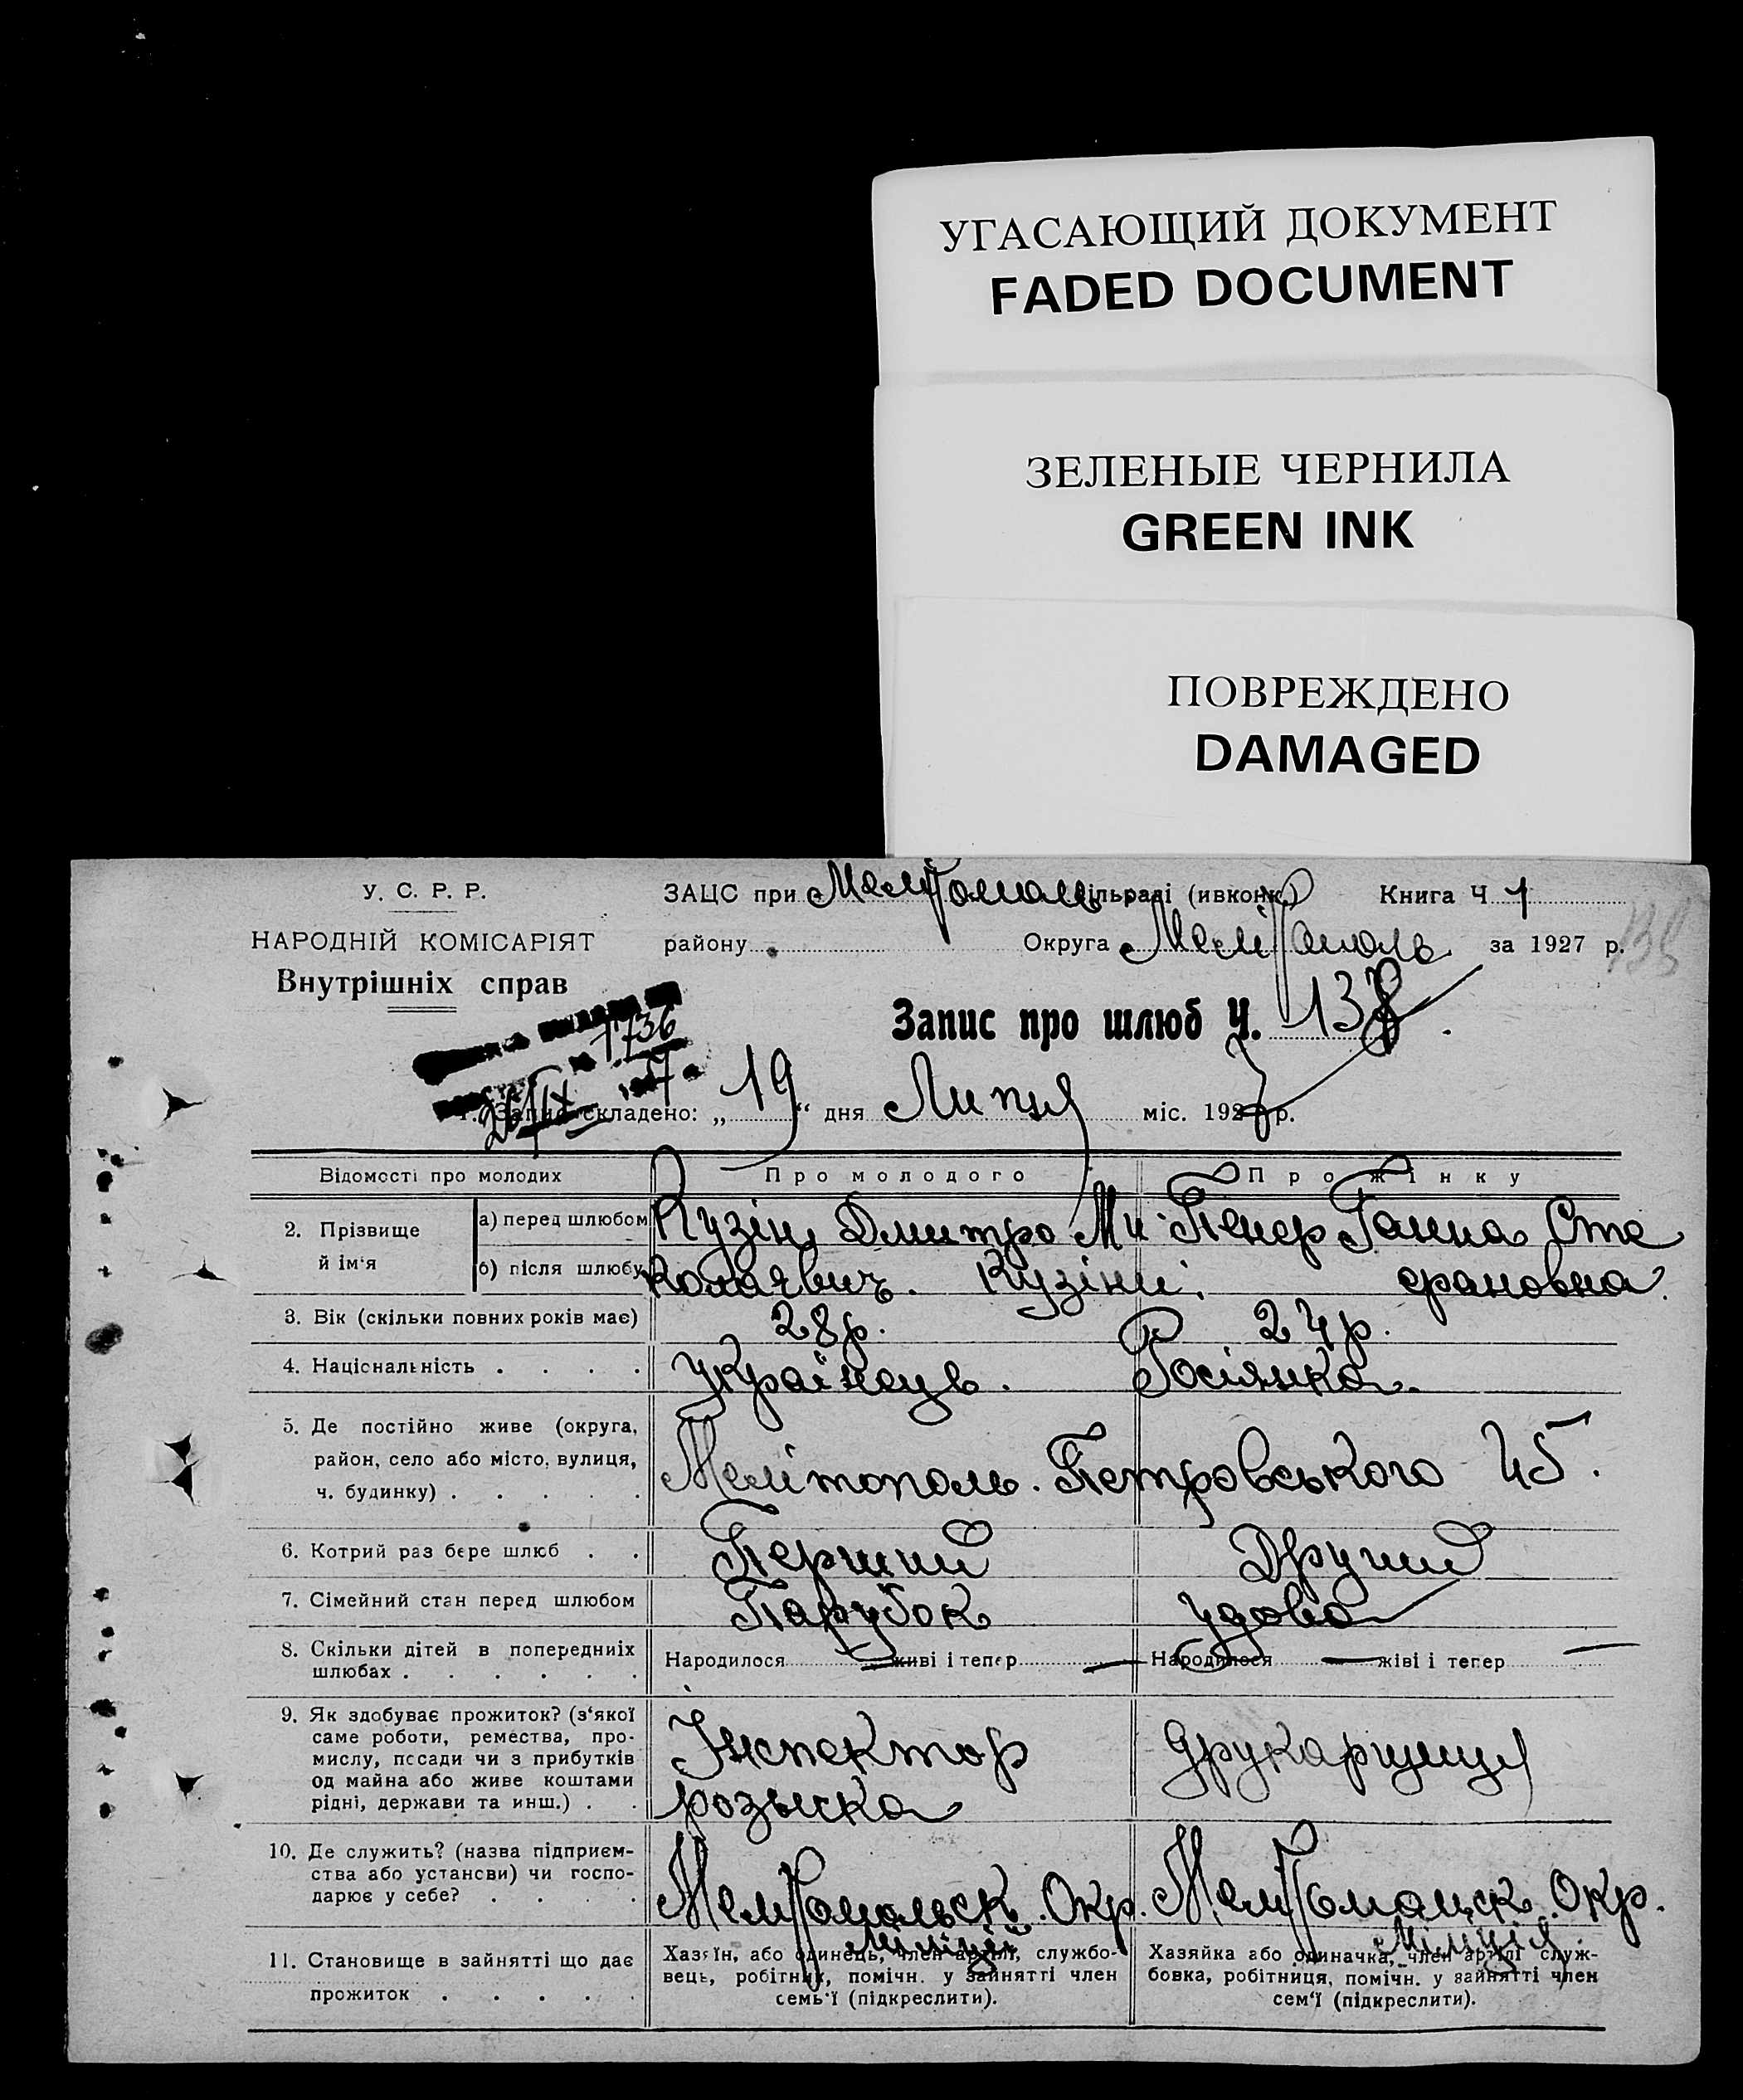 УГАСАЮЩИЙ ДОКУМЕНТ
FADED DOCUMENT
ЗЕЛЕНЫЕ ЧЕРНИЛА
GREEN INK
ПОВРЕЖДЕНО
DAMAGED
У. С. Р. Р.
НАРОДНІЙ КОМІСАРІЯТ
Внутрішніх справ
ЗАЦС при Мелітополь сільраді (ивконк.) Книга Ч 1
району Округа Мелітополь за 1927 р.
138
Запис про шлюб Ч. 138
1736
1. Запис складено: „19“ дня Липня міс. 1927 р.
Відомості про молодих Про молодого Про жінку
2. Прізвище й ім'я
а) перед шлюбом Кузін Дмитро Ми Ганна Сте
б) після шлюбу колаявич. Кузіни. фановна.
3. Вік (скільки повних років має) 28 р. 24 р.
4. Національність . . . . Українець. Росіянка.
5. Де постійно живе (округа,
район, село або місто, вулиця,
ч. будинку) . . . . .
Мелітополь. Петровського 45.
6. Котрий раз бере шлюб . . Перший Другий
7. Сімейний стан перед шлюбом Парубок удова
8. Скільки дітей в попередниіх
шлюбах . . . . . .
Народилося — живі і тепер — Народилося — жіві і тепер —
9. Як здобуває прожиток? (з'якої
саме роботи, ремества, про-
мислу, посади чи з прибутків
од майна або живе коштами
рідні, держави та инш.) . .
Інспектор
розыска
друкарщиця
10. Де служить? (назва підприєм-
ства або установи) чи госпо-
дарює у себе? . . . .
Мелітопольск. Окр.
Міліція
Мелітопольск. Окр.
Міліція.
11. Становище в зайнятті що дає
прожиток . . . . .
Хазяїн, або одинець, член артілі, службо-
вець, робітник, помічн. у зайнятті член
семь'ї (підкреслити).
Хазяйка або одиначка, член артілі служ-
бовка, робітниця, помічн. у зайнятті член
сем'ї (підкреслити).